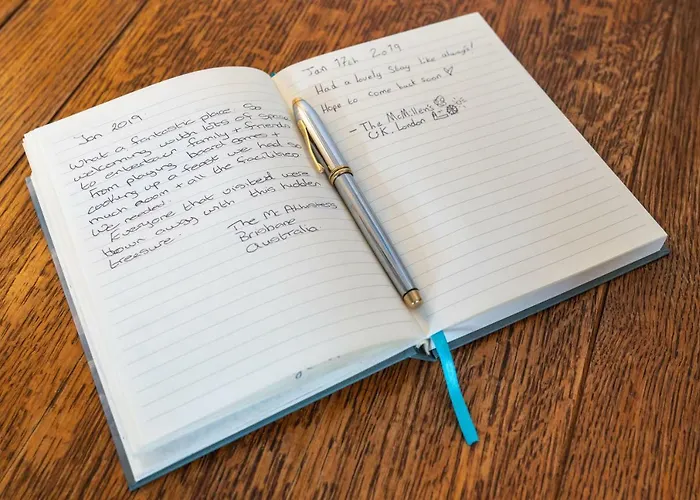 Jan 2019
What a fantastic place. So
welcoming with lots of space
to entertain family + friends
From playing board games +
cooking up a feast we had so
much room + all the facilities
we needed.
Everyone that visited were
blown away with this hidden
treasure.
The
Brisbane
Australia
Jan 17th 2019
Had a lovely stay like always!
Hope to come back soon
- The McMillen's
U.K. London